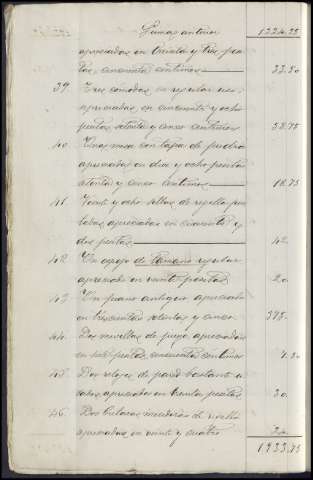 Suma anterior 1334.25
apreciadas en treinta y tres pese
tas, cincuenta centimos 33.50
39. Tres comodas en regular uso
apreciadas en cincuenta y ocho
pesetas setenta y cinco centimos 58.75
40. Una mesa con tapa de piedra
apreciada en diez y ocho pesetas
setenta y cinco centimos 18.75
41. Veinte y ocho sillas de rejilla
apreciadas en cuarenta y
dos pesetas 42.
42. Un espejo de tamaño regular
apreciado en veinte pesetas 20.
43. Un piano antiguo apreciado
en trescientas setenta y cinco 375.
44. Dos mesillas de juego apreciadas
en siete pesetas, cincuenta centimos 7.50
45. Dos relojes de pared bastante u
sados, apreciados en treinta pesetas 30.
46. Dos butacas
apreciadas en veinte y cuatro 24.
1933.75